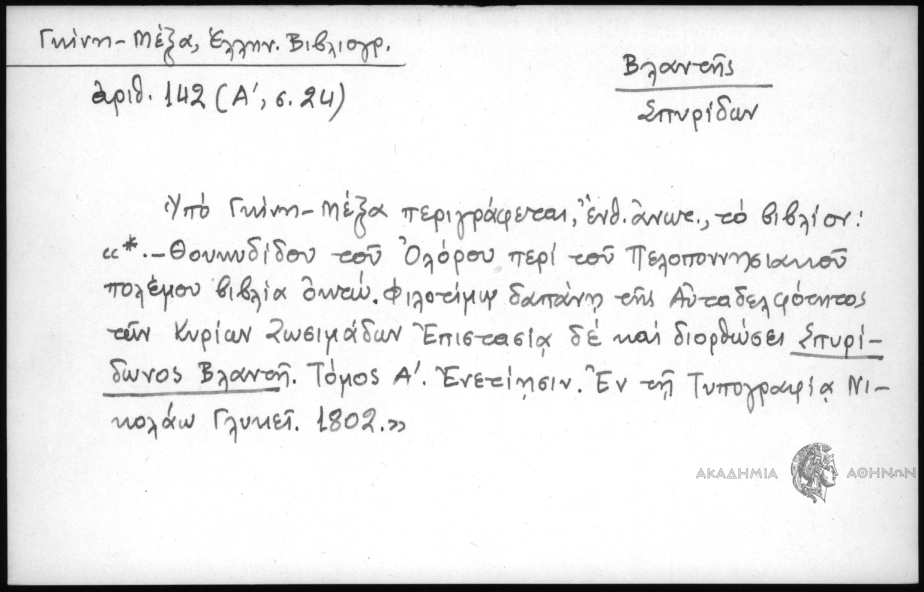 Γκίνη-Μέξα, Ἑλλην. Βιβλιογρ.
ἀριθ. 142 (Α', σ. 24)
Βλαντῆς
Σπυρίδων
Ὑπό Γκίνη-Μέξα περιγράφεται, ἔνθ. ἄνωτ., τό βιβλίον:
«*.-Θουκυδίδου τοῦ Ὀλόρου περί τοῦ Πελοποννησιακοῦ
πολέμου βιβλία ὀκτώ. Φιλοτίμῳ δαπάνῃ τῆς Αὐταδελφότητος
τῶν Κυρίων Ζωσιμάδων Ἐπιστασίᾳ δέ καί διορθώσει Σπυρί-
δωνος Βλαντῆ. Τόμος Α'. Ἐνετίῃσιν. Ἐν τῇ Τυπογραφίᾳ Νι-
κολάω Γλυκεῖ. 1802.»
ΑΚΑΔΗΜΙΑ ΑΘΗΝΩΝ